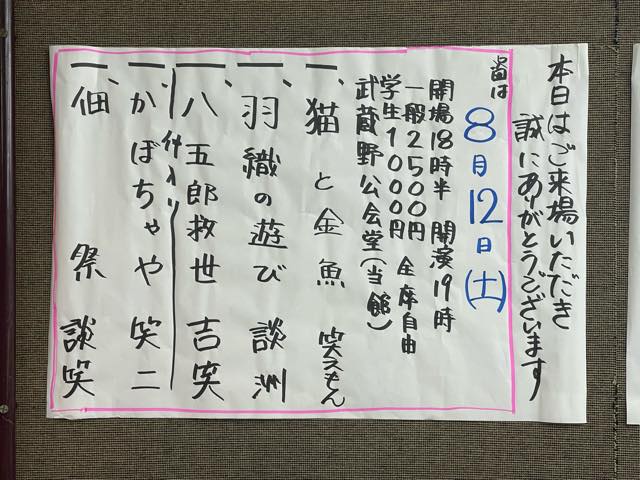 本日はご来場いただき
誠にありがとうございます
次回は
8月12日(土)
開場18時半 開演19時
一般2500円 全席自由
学生1000円
武蔵野公会堂(当館)
一、猫と金魚 笑えもん
一、羽織の遊び 談洲
一、八五郎救世 吉笑
仲入り
一、かぼちゃや 笑二
一、佃祭 談笑